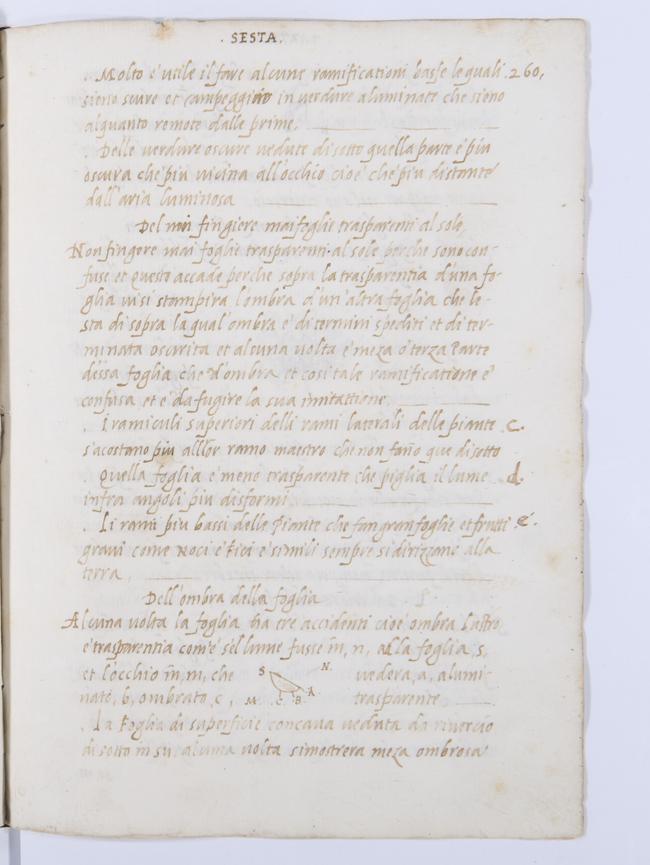 . SESTA.
. Molto è utile il fare alcune ramificationi basse le quali . 260.
sieno scure et campeggino in verdure aluminate che sieno
alquanto remote dalle prime.
. Delle verdure oscure vedute di sotto quella parte è piu
oscura che piu vicina all'occhio cioè che piu distante
dall'aria luminosa
Del non fingiere mai foglie trasparenti al sole.
Non fingere mai foglie trasparenti al sole perche sono con-
fuse et questo accade perche sopra la trasparentia d'una fo-
glia visi stampira l'ombra d'un'altra foglia che le-
sta di sopra la qual'ombra e' di termini spediti et di ter-
minata oscurita et alcuna volta e' meza o' terza Parte
d'essa foglia che d'ombra et cosi tale ramificatione e'
confusa et e' da fugire la sua immitattione.
. i ramiculi superiori delli rami laterali delle piante . c.
s'acostano piu alllor ramo maestro che non fano que disotto
. quella foglia e' meno trasparente che piglia il lume . d.
infra angoli piu disformi
. Li rami piu bassi delle Piante che fan gran foglie et frutti . e.
gravi come Noci e' Fici e' simili sempre si dirizzano alla
terra.
Dell'ombra della foglia
Alcuna volta la foglia ha tre accidenti cioe' ombra lustro
e' trasparentia com'e' s'el lume fusse in, n, alla foglia, s,
et l'occhio in, m, che S N. vedera, a, alumi-
nato, b, ombrato, c, M. C. B. A trasparente
. La Foglia di superficie concava veduta da riverscio
di sotto in sù alcuna volta si mostrera meza ombrosa